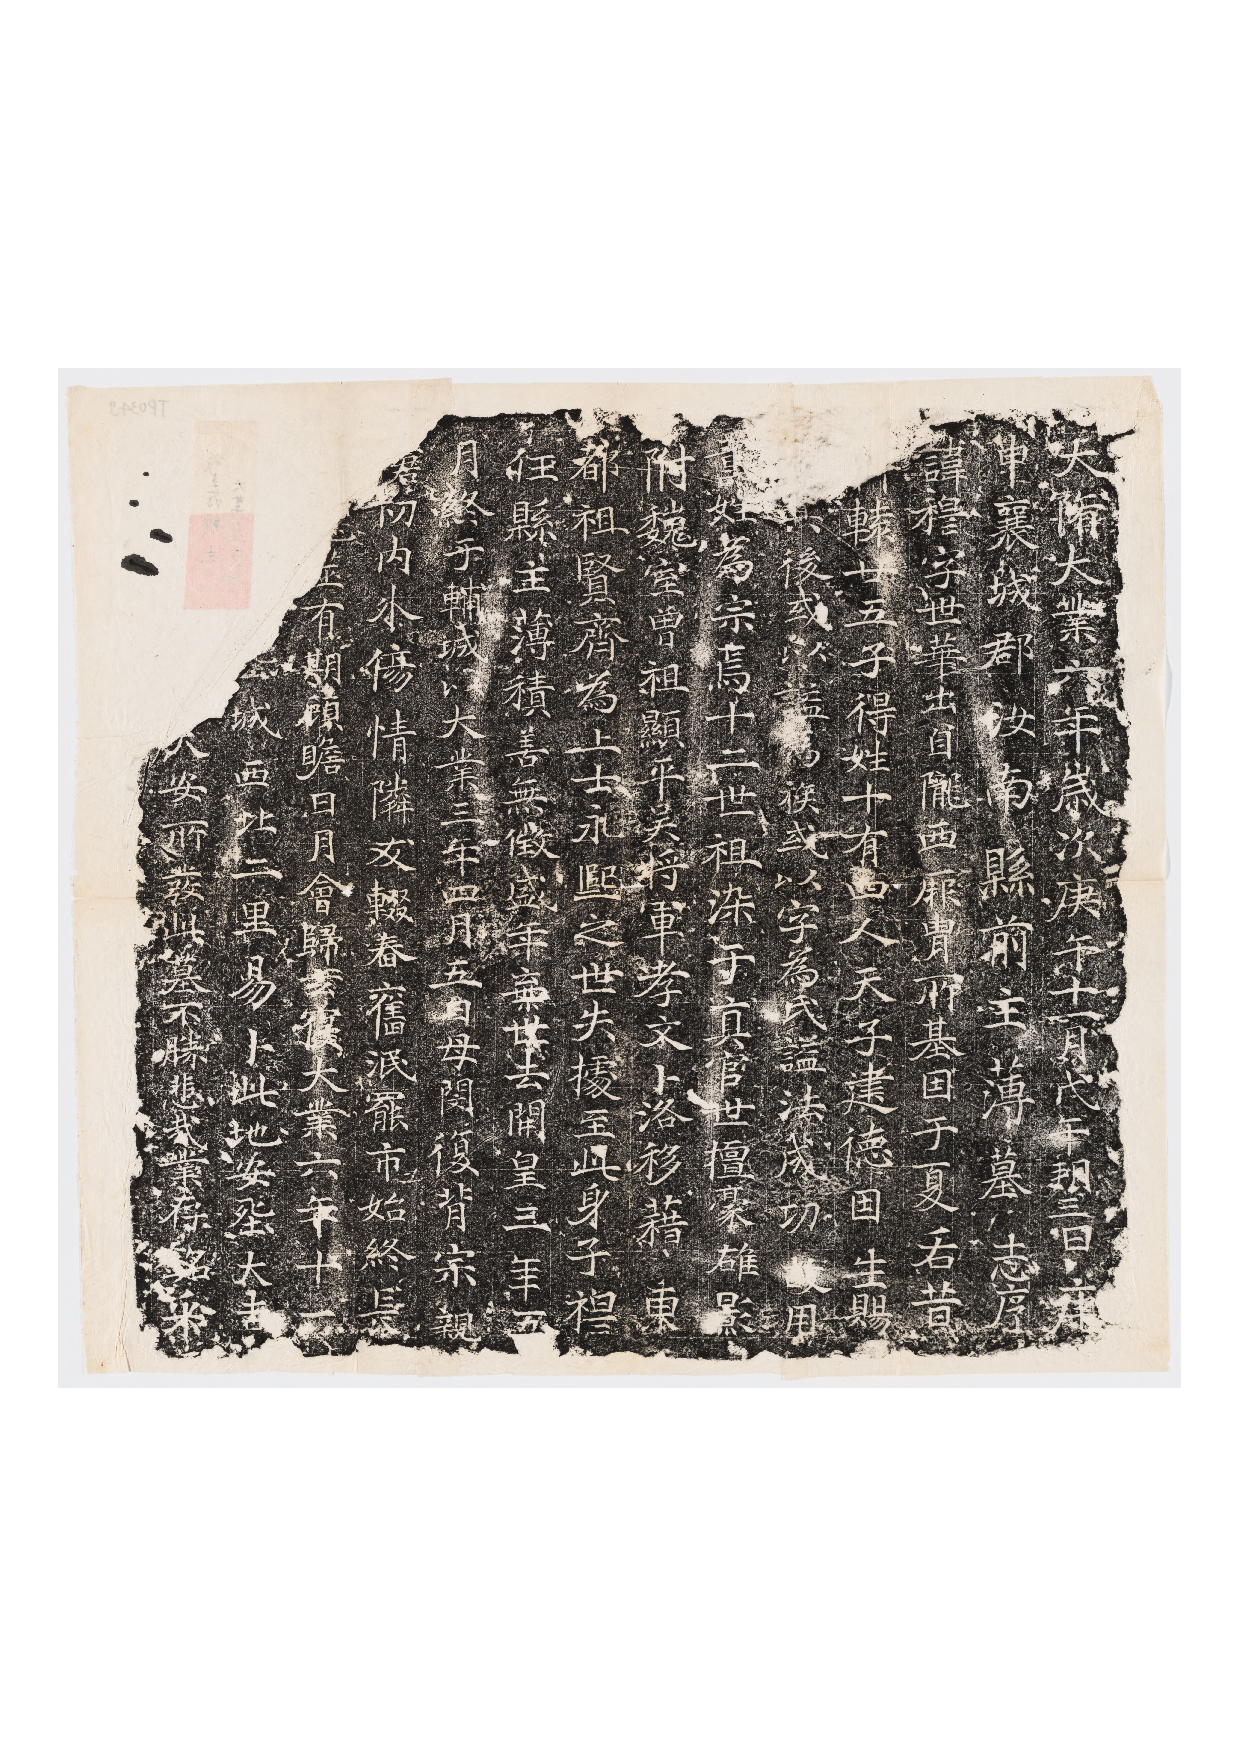 大隋大業六年歳次庚午十一月戊午朔三日庚
申襄城郡汝南縣前主薄墓志序
諱穆字世華出自隴西厥胄所基因于夏后昔
轅廿五子得姓十有四人天子建德因生賜
後或以謚為族或以字為氏謚法成功用
姓為宗焉十二世祖染于真官世擅豪雄影
附魏室曾祖顯平天将軍孝文卜洛移藉東
都祖賢齊為上士永熙之世失據至此身子裎
任縣主薄積善無徵盛年棄世去開皇三年五
月終于輔城以大業三年四月五日母閔復背宗親
君初内外傷情隣友輟舂舊泯罷市始終長
有期顧瞻日月會歸大業六年十一
城西北二里易卜此地安厝大夫
安所發此墓不勝悲哉業存銘乎
TP0349